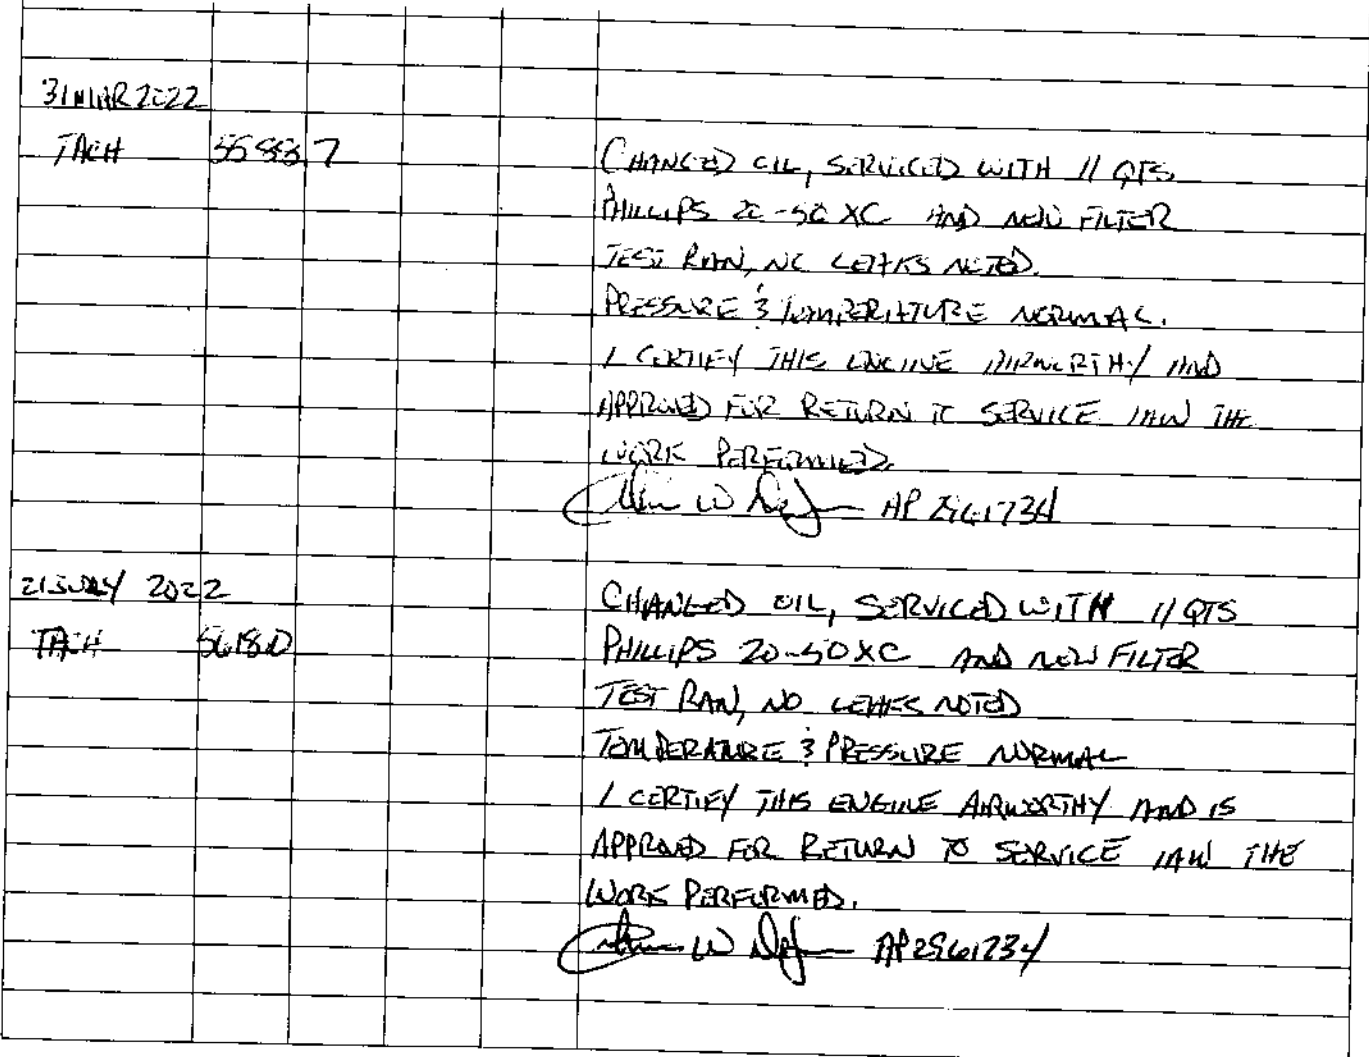 31 MAR 2022
TACH 5588.7 CHANGED OIL, SERVICED WITH 11 QTS
PHILLIPS 20-50 XC AND NEW FILTER
TEST RAN, NO LEAKS NOTED.
PRESSURE & TEMPERATURE NORMAL.
I CERTIFY THIS ENGINE AIRWORTHY AND
APPROVED FOR RETURN TO SERVICE IAW THE
WORK PERFORMED.
W AP 2961734
21 JULY 2022 CHANGED OIL, SERVICED WITH 11 QTS
TACH 5618.0 PHILLIPS 20-50 XC AND NEW FILTER
TEST RAN, NO LEAKS NOTED
TEMPERATURE & PRESSURE NORMAL
I CERTIFY THIS ENGINE AIRWORTHY AND IS
APPROVED FOR RETURN TO SERVICE IAW THE
WORK PERFORMED.
W AP 2961734